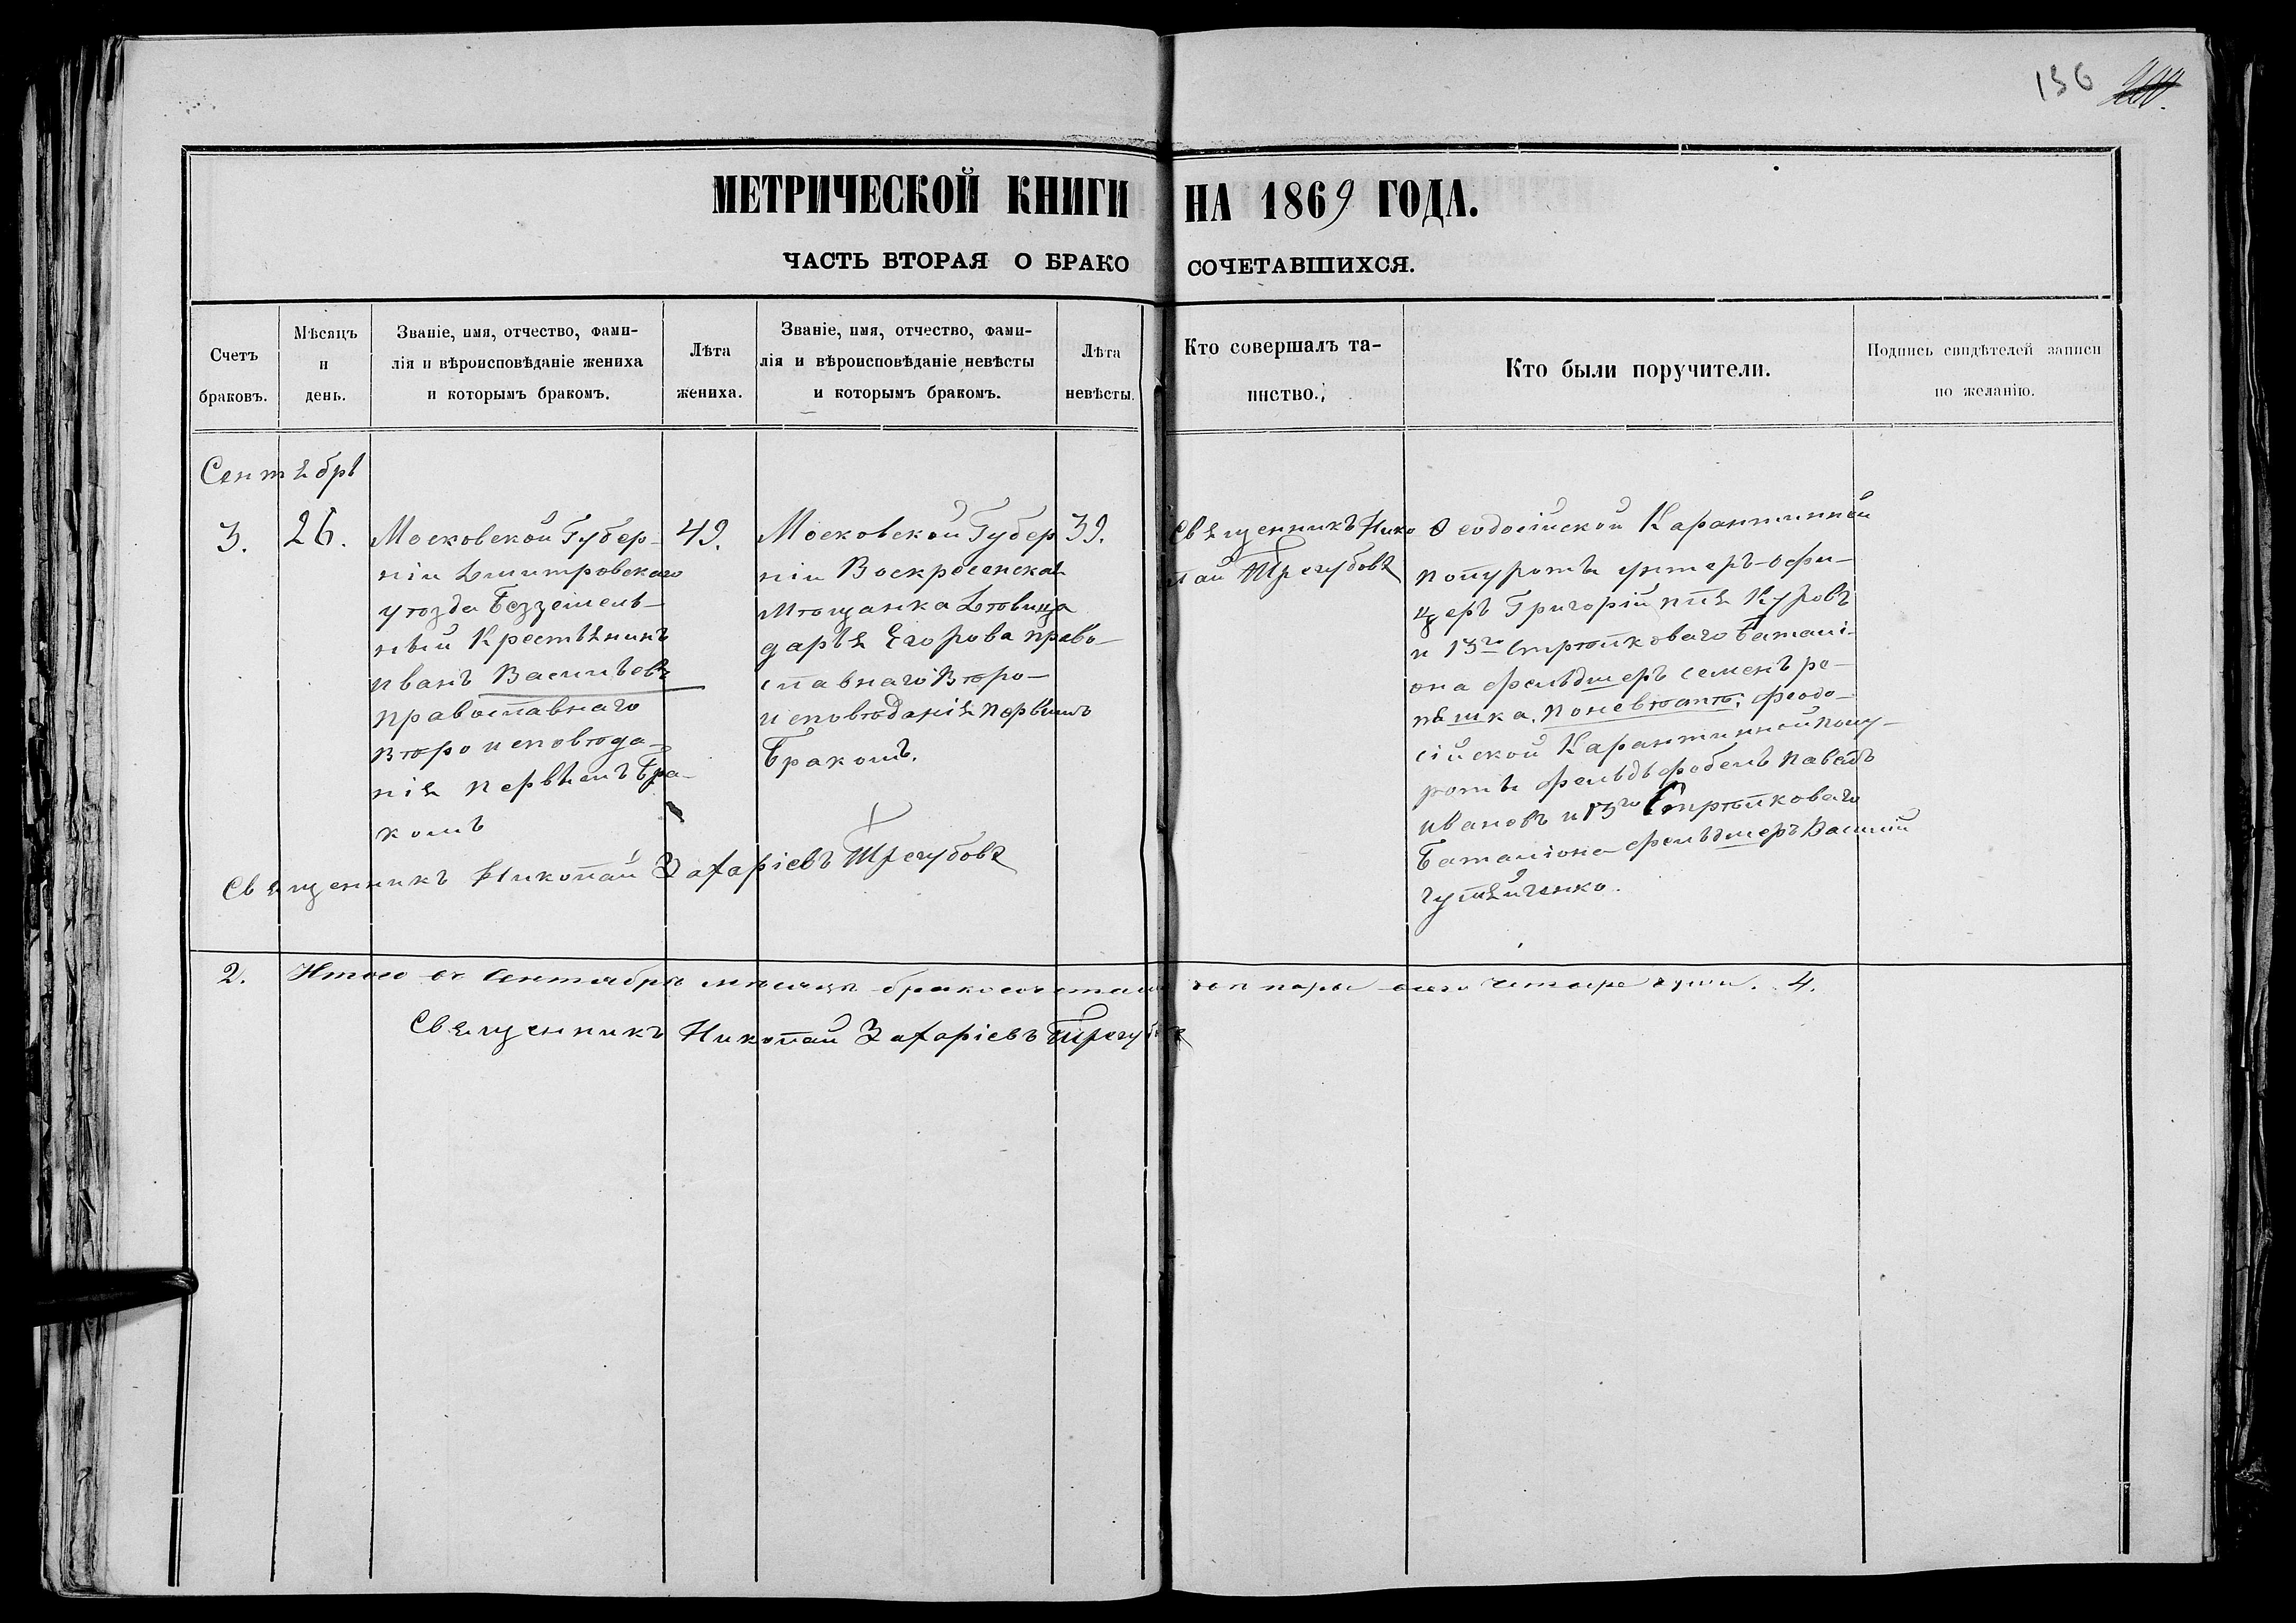 156 200.
МЕТРИЧЕСКОЙ КНИГИ НА 1869 ГОДА.
ЧАСТЬ ВТОРАЯ О БРАКОСОЧЕТАВШИХСЯ.
Счетъ
браковъ.
Мѣсяцъ
и
день.
Званіе, имя, отчество, фами-
лія и вѣроисповѣданіе жениха
и которымъ бракомъ.
Лѣта
жениха.
Званіе, имя, отчество, фами-
лія и вѣроисповѣданіе невѣсты
и которымъ бракомъ.
Лѣта
невѣсты.
Кто совершалъ та-
инство.
Кто были поручители.
Подпись свидѣтелей записи
по желанію.
Сентябрь
3.
26.
Московской Губер-
ніи Дмитровскаго
уѣзда Безземель-
ный Крестьянинъ
иванъ Васильевъ
православнаго
вѣроисповѣда-
нія первымъ бра-
комъ
49.
Московской Губер
ніи Воскресенская
мѣщанка дѣвица
дарья Егорова право-
славнаго вѣро-
исповѣданія первымъ
бракомъ.
39.
Священникъ Нико
лай Трегубовъ
Ѳеодосійской Карантинной
полуроты унтеръ-офи-
церъ Григорій Куровъ
и 13го стрѣлковаго батали-
она фельдшеръ семенъ ре-
пѣшка. по невѣстѣ: феодо-
сійской Карантинной полу-
роты фельдьфебель павелъ
ивановъ и 13го Стрѣлковаго
баталіона фельдшеръ Василій
Священникъ Николай Захаріевъ Трегубовъ
2. Итого въ Сентябрѣ мѣсяцѣ бракосочетались пары всего четыре души. 4.
Священникъ Николай Захаріевъ Трегубовъ